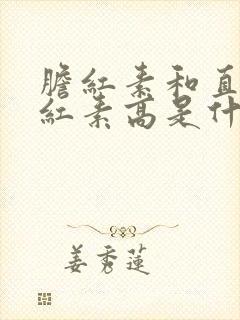 膽红素和直
红素高是什
姜秀莲